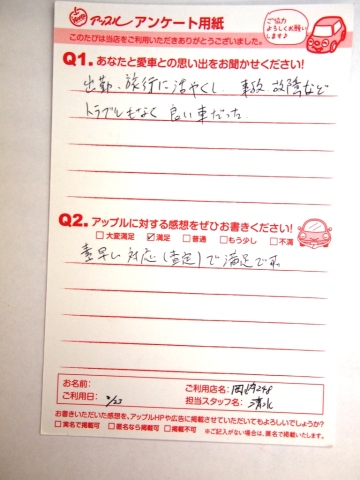 アップル アンケート用紙
ご協力
よろしくお願い
します♪
このたびは当店をご利用いただきありがとうございました。
Q1. あなたと愛車との思い出をお聞かせください!
出勤、旅行に活やくし、事故、故障など
トラブルもなく 良い車だった
Q2. アップルに対する感想をぜひお書きください!
□大変満足 ☑満足 □普通 □もう少し □不満
素早い対応(査定)で満足です。
お名前:
ご利用店名: 岡崎248
ご利用日: 2/23
担当スタッフ名: 清水
お書きいただいた感想を、アップルHPや広告に掲載させていただいてもよろしいでしょうか?
□実名で掲載可 □匿名なら掲載可 □掲載不可 ※ご記入がない場合は、匿名で掲載いたします。